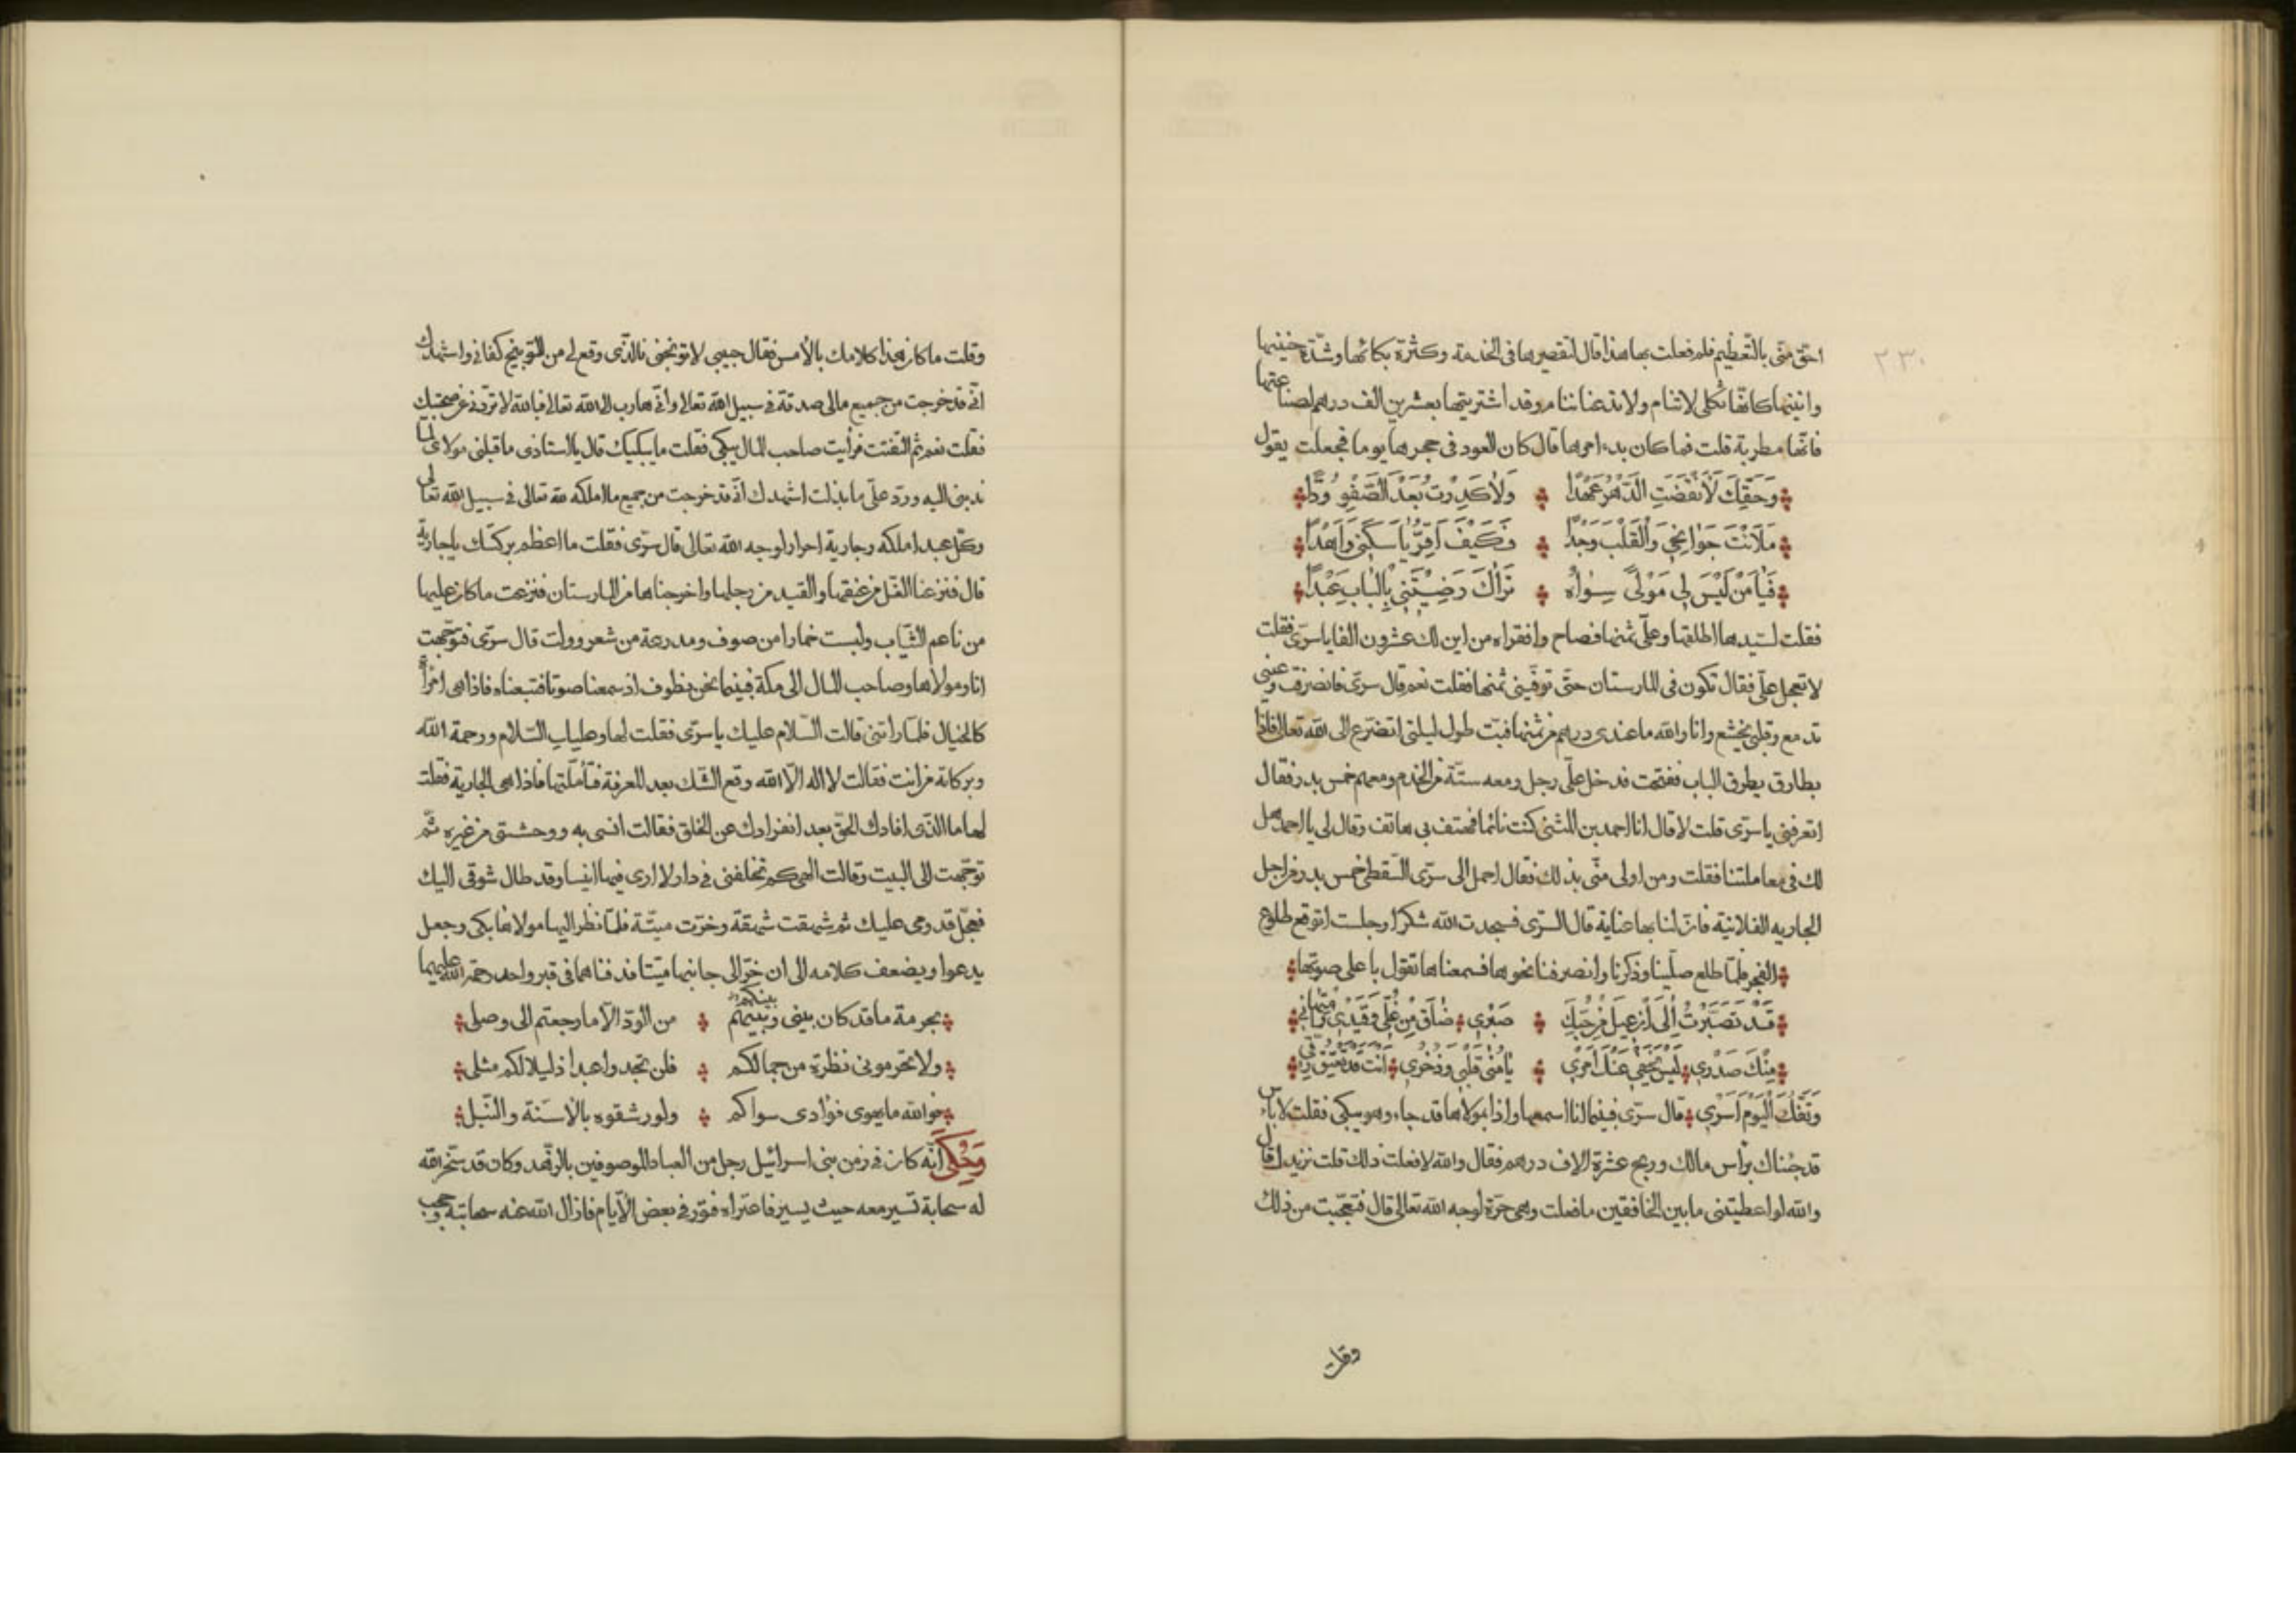 ٢٣٠
احق منى بالتعظيم فلم فعلت بها هذا قال لتقصيرها فى الخدمة وكثرة بكائها وشدّة حنينها
وانينها كانّها ثكلى لا تنام ولا تدعنا ننام وقد اشتريتها بعشرين الف درهم لصناعتها
فانّها مطربة قلت فما كان بدء امرها قال كان العود فى حجرها يوما فجعلت يقول
وَحَقِّكَ لَا نَقَضْتُ الدَّهْرَ عَهْدًا ۞ وَلَا كَدَّرْتُ بَعْدَ الصَّفْوِ وُدًّا
مَلَأْتَ جَوَانِحِي وَالْقَلْبَ وَجْدًا ۞ فَكَيْفَ أَقِرُّ يَا سَكَنِي وَأَهْدَا
فَيَا مَنْ لَيْسَ لِي مَوْلًى سِوَاهُ ۞ تَرَاكَ رَضِيتَنِي بِالْبَابِ عَبْدًا
فقلت لسيّدها اطلقها وعلىّ ثمنها فصاح وافقراه من اين لك عشرون الفا يا سرّى فقلت
لا تعجل علىّ فقال تكون فى المارستان حتّى توفّينى ثمنها فقلت نعم قال سرّى فانصرفت وعينى
تدمع وقلبى يخشع وانا والله ما عندى درهم من ثمنها فبتّ طول ليلتى اتضرّع الى الله تعالى فاذا
بطارق يطرق الباب ففتحت فدخل علىّ رجل ومعه ستّة من الخدم ومعهم خمس بدر فقال
اتعرفنى يا سرّى قلت لا قال انا احمد بن المثنى كنت نائما فهتف بى هاتف وقال لى يا احمد هل
لك فى معاملتنا فقلت ومن اولى منّى بذلك فقال احمل الى سرّى السّقطى خمس بدر من اجل
الجاريه الفلانية فانّ لنا بها عناية قال السرّى فسجدت الله شكرا وجلست اتوقع طلوع
الفجر فلمّا طلع صلّينا وذكرنا وانصرفنا نحوها فسمعناها تقول باعلى صوتها
قَدْ تَصَبَّرْتُ إِلَى أَنْ عِيلَ مِنْ حُبِّكَ ۞ صَبْرِي ۞ ضَاقَ مِنْ غُلِّي وَقَيْدِي وَامْتِهَانِي
مِنْكَ صَدْرِي ۞ لَيْسَ يَخْفَى عَنْكَ أَمْرِي ۞ يَا مُنَى قَلْبِي وَذُخْرِي ۞ أَنْتَ قَدْ تُعْتِقُ رِقِّي
وَتَفُكُّ الْيَوْمَ أَسْرِي ۞ قال سرّى فبينما انا اسمعها واذا بمولاها قد جاء وهو يبكى فقلت لا بأس
قد جئناك برأس مالك وربح عشرة الاف درهم فقال والله لا فعلت ذلك قلت نزيدك قال
والله لو اعطيتنى ما بين الخافقين ما فعلت وهى حرّة لوجه الله تعالى قال فتعجّبت من ذلك
وقلت
وقلت ما كان هذا كلامك بالأمس فقال حبيبى لا توبخنى فالذّى وقع لى من التوبيخ كفانى واشهدك
انّى قد خرجت من جميع مالى صدقة فى سبيل الله تعالى وأنّى هارب الى الله تعالى فبالله لا تردّنى عن صحبتك
فقلت نعم ثم التفتت فرأيت صاحب المال يبكى فقلت ما يبكيك قال يا استاذى ما قبلنى مولاى لما
ندبنى اليه وردّ علىّ ما بذلت اشهدك انّى قد خرجت من جميع ما املكه لله تعالى فى سبيل الله تعالى
وكلّ عبد املكه وجارية احرار لوجه الله تعالى قال سرّى فقلت ما اعظم بركتك يا جارية
قال فنزعنا الغلّ من عنقها والقيد من رجلها واخرجناها من المارستان فنزعت ما كان عليها
من ناعم الثّياب ولبست خمارا من صوف ومدرعة من شعر وولت قال سرّى فتوجّهت
انا ومولاها وصاحب المال الى مكة فبينما نحن نطوف اذ سمعنا صوتا فتبعناه فاذا هى امرأة
كالخيال فلمّا راتنى قالت السّلام عليك يا سرّى فقلت لها وعليك السّلام ورحمة الله
وبركاته من انت فقالت لا اله الاّ الله وقع الشّك بعد المعرفة فتأمّلتها فاذا هى الجارية فقلت
لها ما الذّى افادك الحقّ بعد انفرادك عن الخلق فقالت انسى به ووحشتى من غيره ثمّ
توجّهت الى البيت وقالت الهى كم تخلفنى فى دار لا ارى فيها انيسا وقد طال شوقى اليك
فعجّل قدومى عليك ثم شهقت شهقة وخرّت ميتّة فلمّا نظر اليها مولاها بكى وجعل
يدعوا ويضعف كلامه الى ان خرّ الى جانبها ميّتا فدفناهما فى قبر واحد رحمة الله عليهما
بحرمة ما قد كان بينى وبينكم ۞ من الودّ الاّ ما رجعتم الى وصلى
ولا تحرمونى نظرة من جمالكم ۞ فلن تجدوا عبدا ذليلا لكم مثلى
فوالله ما يهوى فؤادى سواكم ۞ ولو رشقوه بالأسنّة والنّبل
وَحُكِىَ انّه كان فى زمن بنى اسرائيل رجل من العباد الموصوفين بالزّهد وكان قد سخر الله
له سحابة تسير معه حيث يسير فاعتراه فتور فى بعض الأيام فازال الله عنه سحابته وحجب